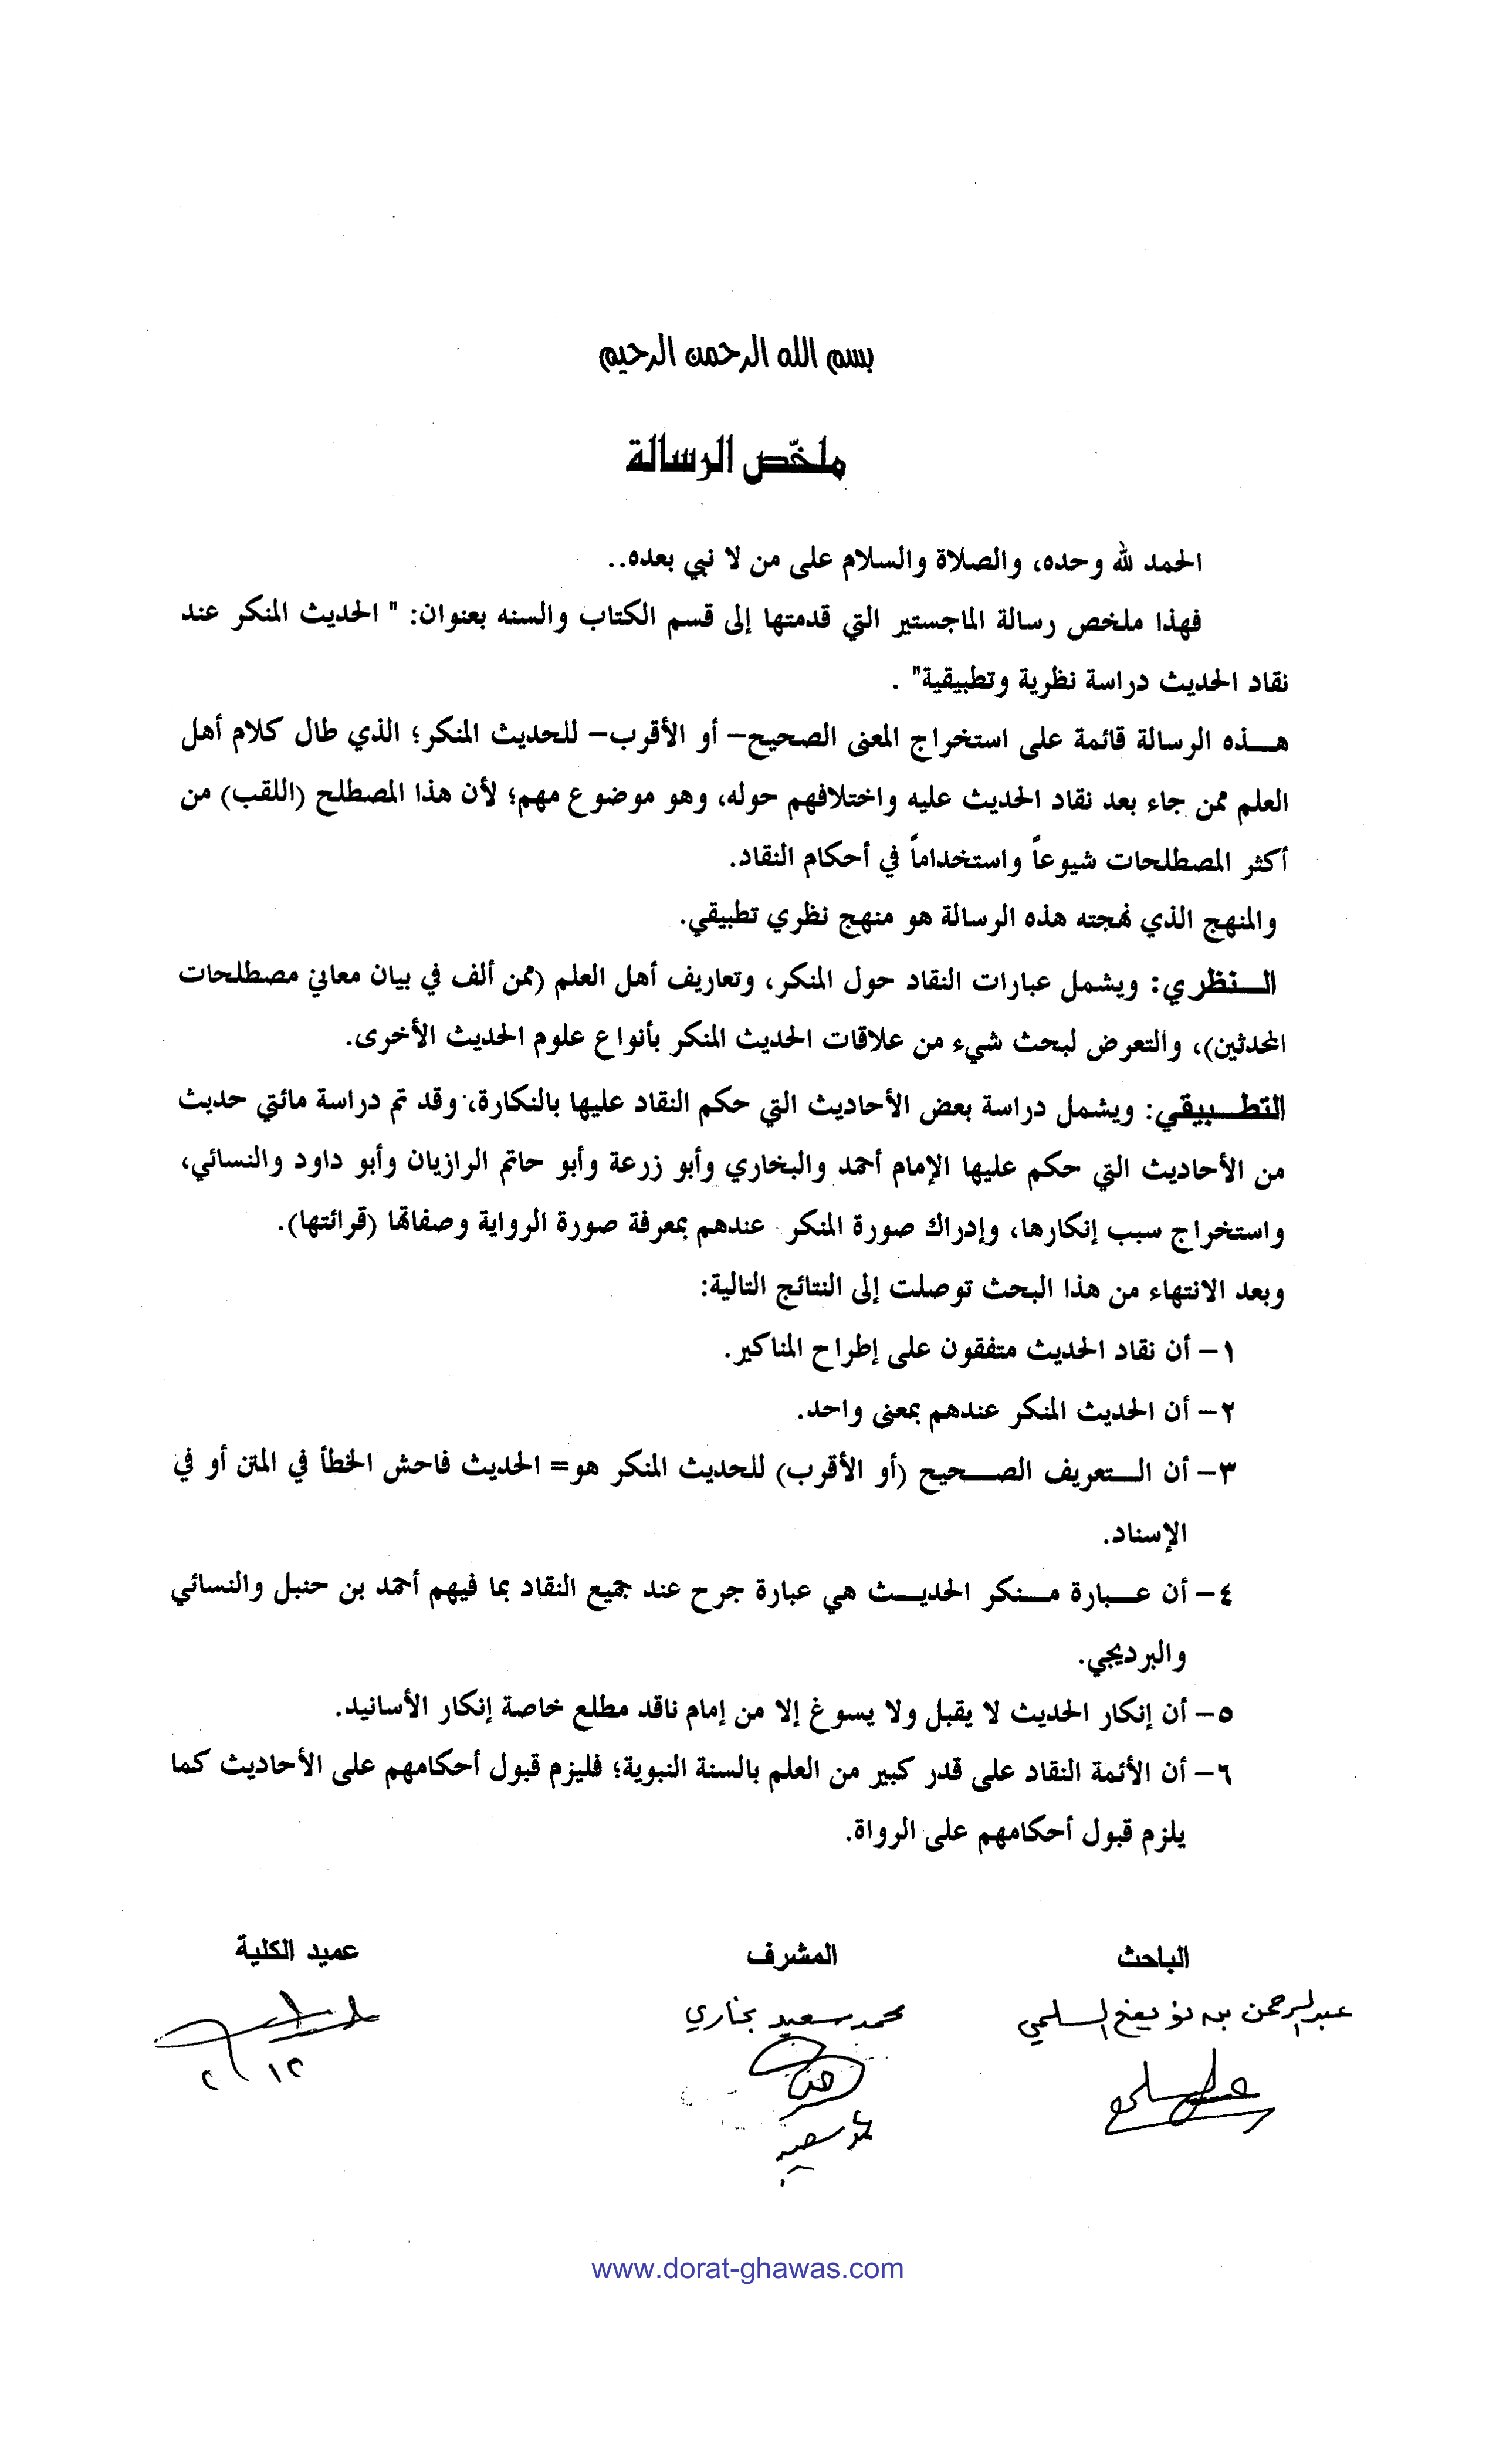 بسم الله الرحمن الرحيم
ملخّص الرسالة
الحمد لله وحده، والصلاة والسلام على من لا نبي بعده..
فهذا ملخص رسالة الماجستير التي قدمتها إلى قسم الكتاب والسنه بعنوان: " الحديث المنكر عند
نقاد الحديث دراسة نظرية وتطبيقية" .
هذه الرسالة قائمة على استخراج المعنى الصحيح– أو الأقرب– للحديث المنكر؛ الذي طال كلام أهل
العلم ممن جاء بعد نقاد الحديث عليه واختلافهم حوله، وهو موضوع مهم؛ لأن هذا المصطلح (اللقب) من
أكثر المصطلحات شيوعاً واستخداماً في أحكام النقاد.
والمنهج الذي نهجته هذه الرسالة هو منهج نظري تطبيقي.
النظري: ويشمل عبارات النقاد حول المنكر، وتعاريف أهل العلم (ممن ألف في بيان معاني مصطلحات
المحدثين)، والتعرض لبحث شيء من علاقات الحديث المنكر بأنواع علوم الحديث الأخرى.
التطبيقي: ويشمل دراسة بعض الأحاديث التي حكم النقاد عليها بالنكارة، وقد تم دراسة مائتي حديث
من الأحاديث التي حكم عليها الإمام أحمد والبخاري وأبو زرعة وأبو حاتم الرازيان وأبو داود والنسائي،
واستخراج سبب إنكارها، وإدراك صورة المنكر عندهم بمعرفة صورة الرواية وصفاتها (قرائتها).
وبعد الانتهاء من هذا البحث توصلت إلى النتائج التالية:
١– أن نقاد الحديث متفقون على إطراح المناكير.
٢– أن الحديث المنكر عندهم بمعنى واحد.
٣– أن التعريف الصحيح (أو الأقرب) للحديث المنكر هو= الحديث فاحش الخطأ في المتن أو في
الإسناد.
٤– أن عبارة منكر الحديث هي عبارة جرح عند جميع النقاد بما فيهم أحمد بن حنبل والنسائي
والبرديجي.
٥– أن إنكار الحديث لا يقبل ولا يسوغ إلا من إمام ناقد مطلع خاصة إنكار الأسانيد.
٦– أن الأئمة النقاد على قدر كبير من العلم بالسنة النبوية؛ فليزم قبول أحكامهم على الأحاديث كما
يلزم قبول أحكامهم على الرواة.
الباحث المشرف عميد الكلية
عبدالرحمن بن نويفع السلمي محمد سعيد بخاري
www.dorat-ghawas.com